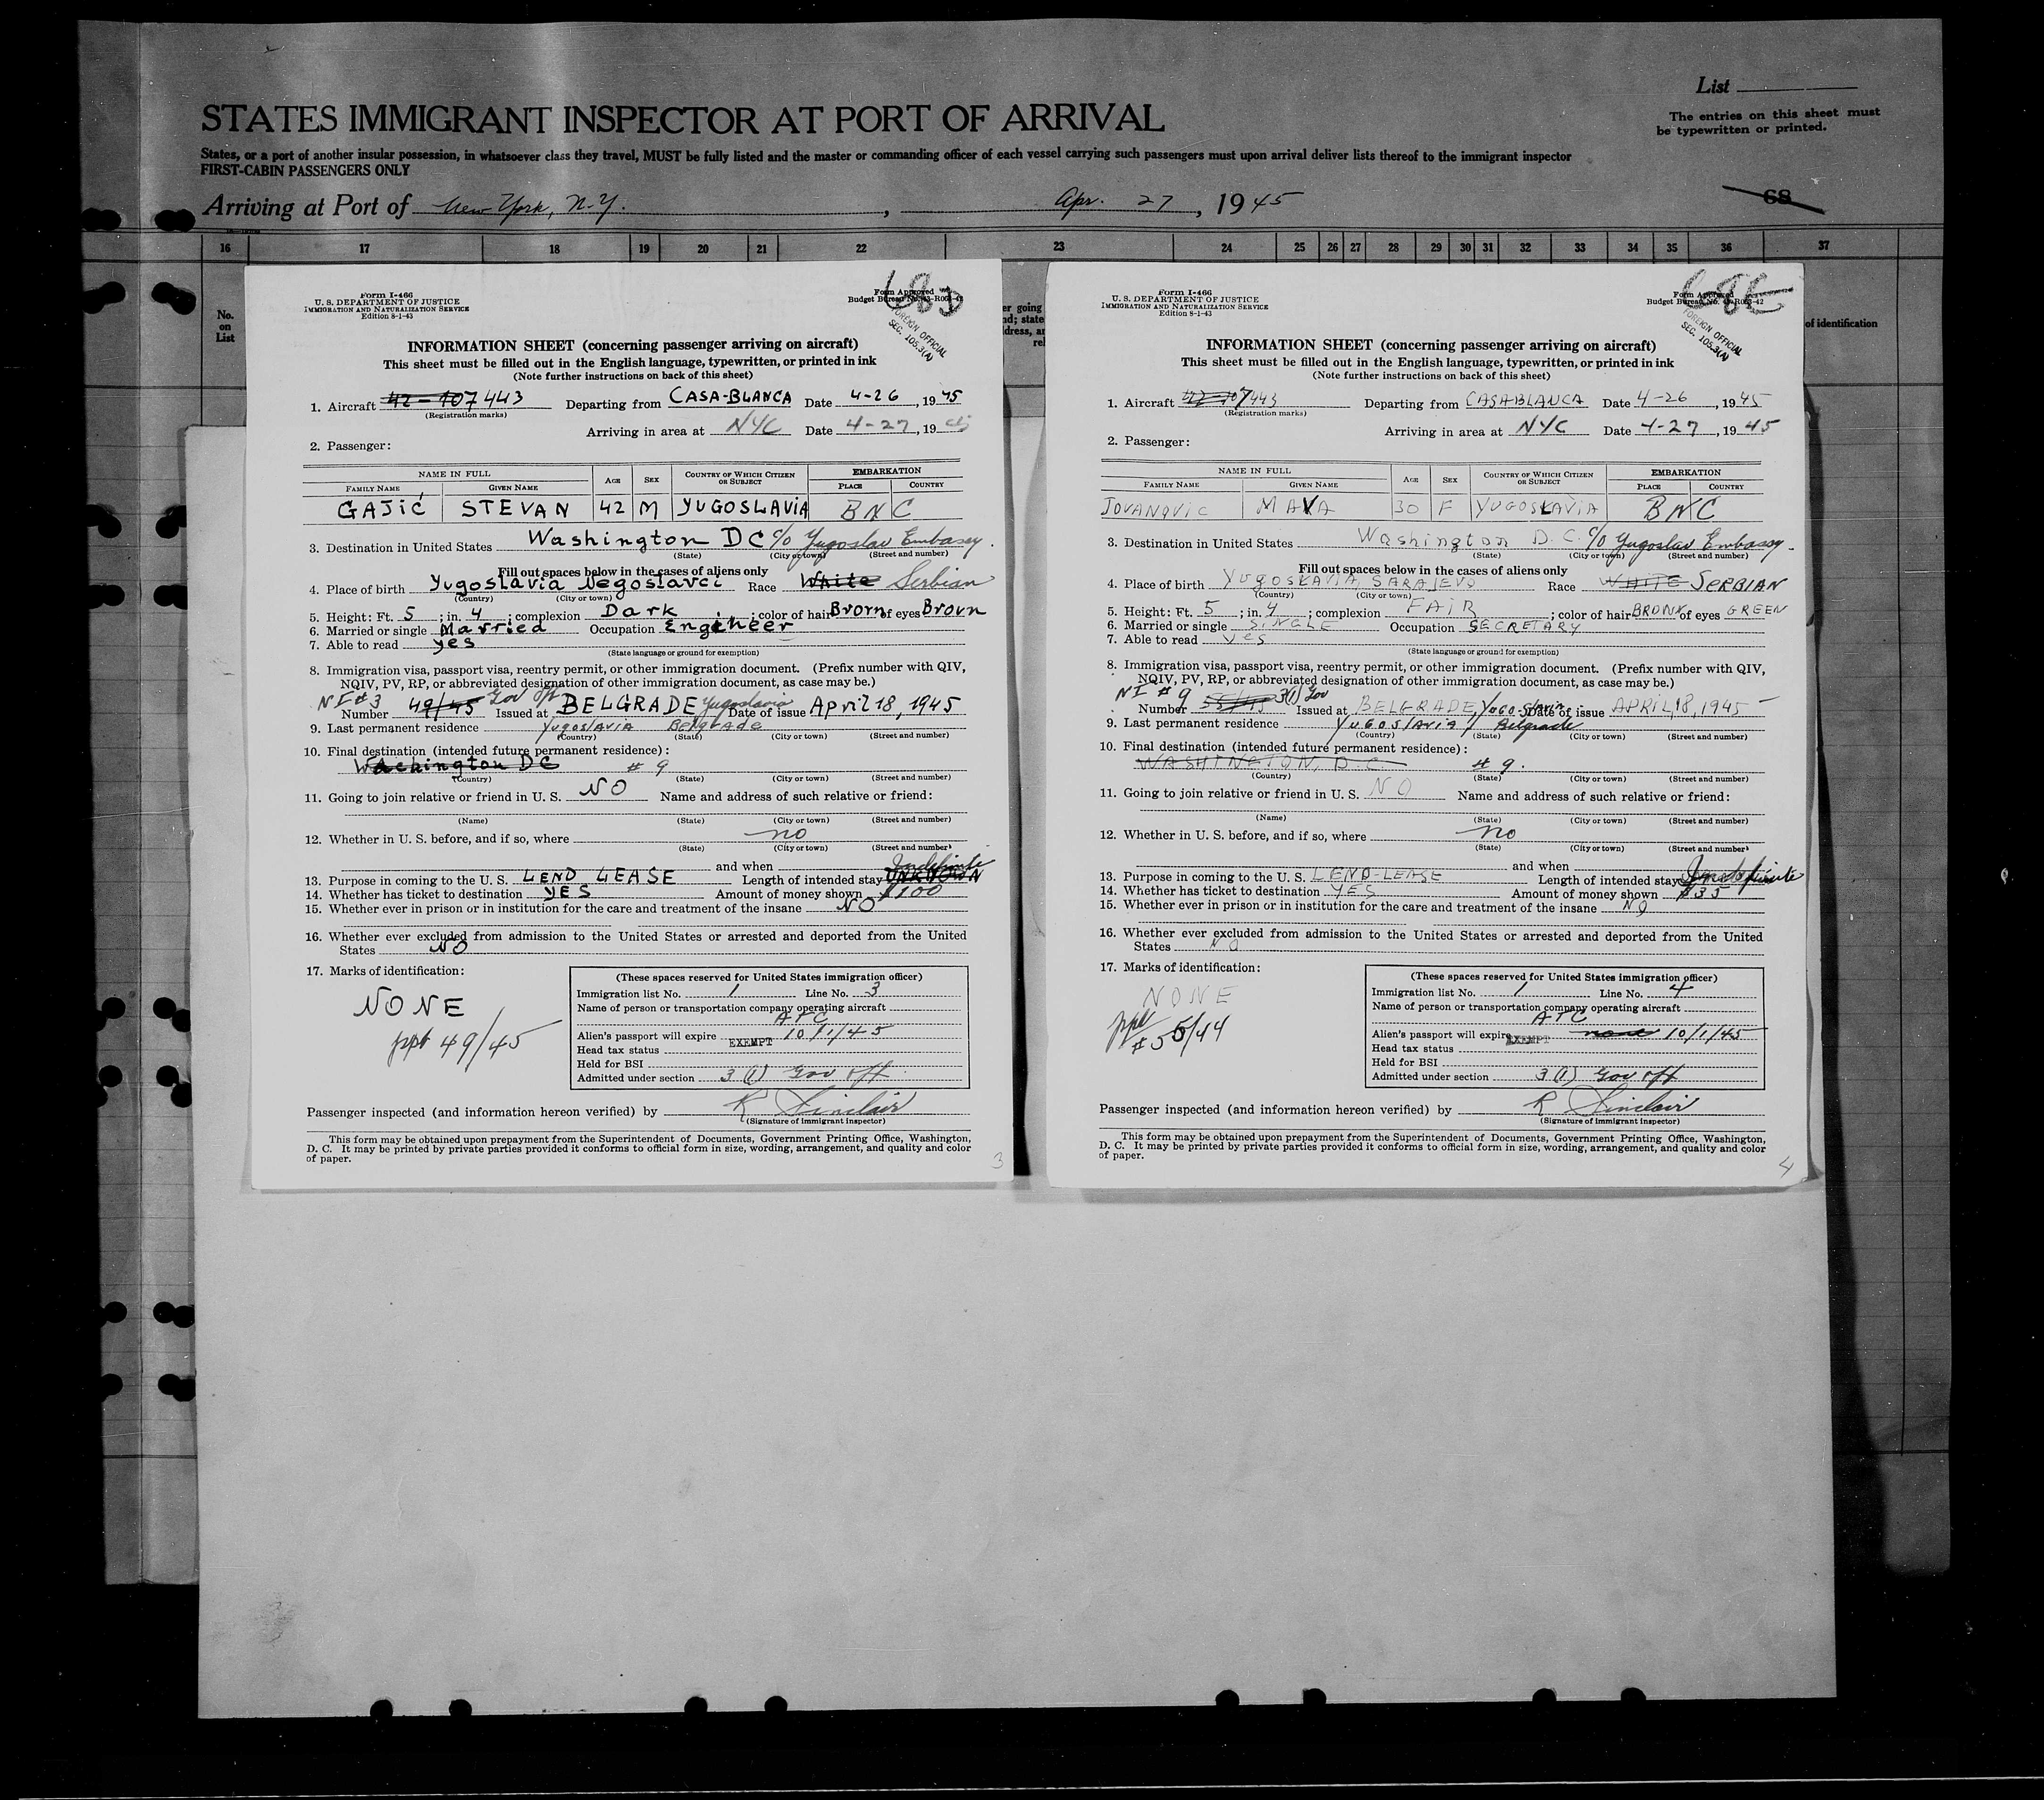 List
The entries on this sheet must
be typewritten or printed.
STATES IMMIGRANT INSPECTOR AT PORT OF ARRIVAL
States, or a port of another insular possession, in whatsoever class they travel, MUST be fully listed and the master or commanding officer of each vessel carrying such passengers must upon arrival deliver lists thereof to the immigrant inspector
FIRST-CABIN PASSENGERS ONLY
Arriving at Port of New York, N.Y. , Apr. 27 , 1945
68
16 17 18 19 20 21 22 23 24 25 26 27 28 29 30 31 32 33 34 35 36 37
No.
on
List
of identification
Form I-466
U. S. DEPARTMENT OF JUSTICE
IMMIGRATION AND NATURALIZATION SERVICE
Edition 8-1-43
Form Approved
Budget Bureau No. 43-R063-42
FOREIGN OFFICIAL
SEC. 105.3(A)
INFORMATION SHEET (concerning passenger arriving on aircraft)
This sheet must be filled out in the English language, typewritten, or printed in ink
(Note further instructions on back of this sheet)
1. Aircraft 42-107443 Departing from CASA-BLANCA Date 4-26, 1945
(Registration marks)
Arriving in area at NYC Date 4-27, 1945
2. Passenger:
NAME IN FULL AGE SEX COUNTRY OF WHICH CITIZEN OR SUBJECT EMBARKATION
FAMILY NAME GIVEN NAME PLACE COUNTRY
GAJIĆ STEVAN 42 M YUGOSLAVIA BNC
3. Destination in United States Washington DC c/o Yugoslav Embassy.
(State) (City or town) (Street and number)
Fill out spaces below in the cases of aliens only
4. Place of birth Yugoslavia Negoslavci Race White Serbian
(Country) (City or town)
5. Height: Ft. 5 ; in. 4 ; complexion Dark ; color of hair Brorn of eyes Brovn
6. Married or single Married Occupation Engineer
7. Able to read yes
(State language or ground for exemption)
8. Immigration visa, passport visa, reentry permit, or other immigration document. (Prefix number with QIV,
NQIV, PV, RP, or abbreviated designation of other immigration document, as case may be.)
NI #3 Gov off
Number 49/45 Issued at BELGRADE Yugoslavia Date of issue April 18, 1945
9. Last permanent residence Yugoslavia Belgrade
(Country) (State) (City or town) (Street and number)
10. Final destination (intended future permanent residence):
Wachington DC # 9
(Country) (State) (City or town) (Street and number)
11. Going to join relative or friend in U. S. NO Name and address of such relative or friend:
(Name) (State) (City or town) (Street and number)
12. Whether in U. S. before, and if so, where no
(State) (City or town) (Street and number)
and when
13. Purpose in coming to the U. S. LEND LEASE Length of intended stay UNKNOWN Indefinite
14. Whether has ticket to destination YES Amount of money shown $100
15. Whether ever in prison or in institution for the care and treatment of the insane NO
16. Whether ever excluded from admission to the United States or arrested and deported from the United
States NO
17. Marks of identification:
NONE
ppt 49/45
(These spaces reserved for United States immigration officer)
Immigration list No. 1 Line No. 3
Name of person or transportation company operating aircraft
ATC
Alien's passport will expire 10/1/45
Head tax status EXEMPT
Held for BSI
Admitted under section 3(1) Gov off
Passenger inspected (and information hereon verified) by R Sinclair
(Signature of immigrant inspector)
This form may be obtained upon prepayment from the Superintendent of Documents, Government Printing Office, Washington,
D. C. It may be printed by private parties provided it conforms to official form in size, wording, arrangement, and quality and color
of paper.
3
Form I-466
U. S. DEPARTMENT OF JUSTICE
IMMIGRATION AND NATURALIZATION SERVICE
Edition 8-1-43
Form Approved
Budget Bureau No. 43-R063-42
FOREIGN OFFICIAL
SEC. 105.3(A)
INFORMATION SHEET (concerning passenger arriving on aircraft)
This sheet must be filled out in the English language, typewritten, or printed in ink
(Note further instructions on back of this sheet)
1. Aircraft 42-107443 Departing from CASABLANCA Date 4-26, 1945
(Registration marks)
Arriving in area at NYC Date 4-27, 1945
2. Passenger:
NAME IN FULL AGE SEX COUNTRY OF WHICH CITIZEN OR SUBJECT EMBARKATION
FAMILY NAME GIVEN NAME PLACE COUNTRY
JOVANOVIC 30 F YUGOSLAVIA BNC
3. Destination in United States Washington D.C. c/o Yugoslav Embassy.
(State) (City or town) (Street and number)
Fill out spaces below in the cases of aliens only
4. Place of birth YUGOSLAVIA, SARAJEVO Race WHITE SERBIAN
(Country) (City or town)
5. Height: Ft. 5 ; in. 4 ; complexion FAIR ; color of hair of eyes GREEN
6. Married or single SINGLE Occupation SECRETARY
7. Able to read Yes
(State language or ground for exemption)
8. Immigration visa, passport visa, reentry permit, or other immigration document. (Prefix number with QIV,
NQIV, PV, RP, or abbreviated designation of other immigration document, as case may be.)
NI # 9 3(1) Gov
Number Issued at BELGRADE, Yugo-Slavia Date of issue APRIL, 18, 1945
9. Last permanent residence Yugoslavia, Belgrade
(Country) (State) (City or town) (Street and number)
10. Final destination (intended future permanent residence):
WASHINGTON, D.C. # 9.
(Country) (State) (City or town) (Street and number)
11. Going to join relative or friend in U. S. NO Name and address of such relative or friend:
(Name) (State) (City or town) (Street and number)
12. Whether in U. S. before, and if so, where no
(State) (City or town) (Street and number)
and when
13. Purpose in coming to the U. S. LEND-LEASE Length of intended stay Indefinite
14. Whether has ticket to destination YES Amount of money shown $35
15. Whether ever in prison or in institution for the care and treatment of the insane NO
16. Whether ever excluded from admission to the United States or arrested and deported from the United
States NO
17. Marks of identification:
NONE
ppt
(These spaces reserved for United States immigration officer)
Immigration list No. 1 Line No. 4
Name of person or transportation company operating aircraft
ATC
Alien's passport will expire none 10/1/45
Head tax status EXEMPT
Held for BSI
Admitted under section 3(1) Gov off
Passenger inspected (and information hereon verified) by R Sinclair
(Signature of immigrant inspector)
This form may be obtained upon prepayment from the Superintendent of Documents, Government Printing Office, Washington,
D. C. It may be printed by private parties provided it conforms to official form in size, wording, arrangement, and quality and color
of paper.
4